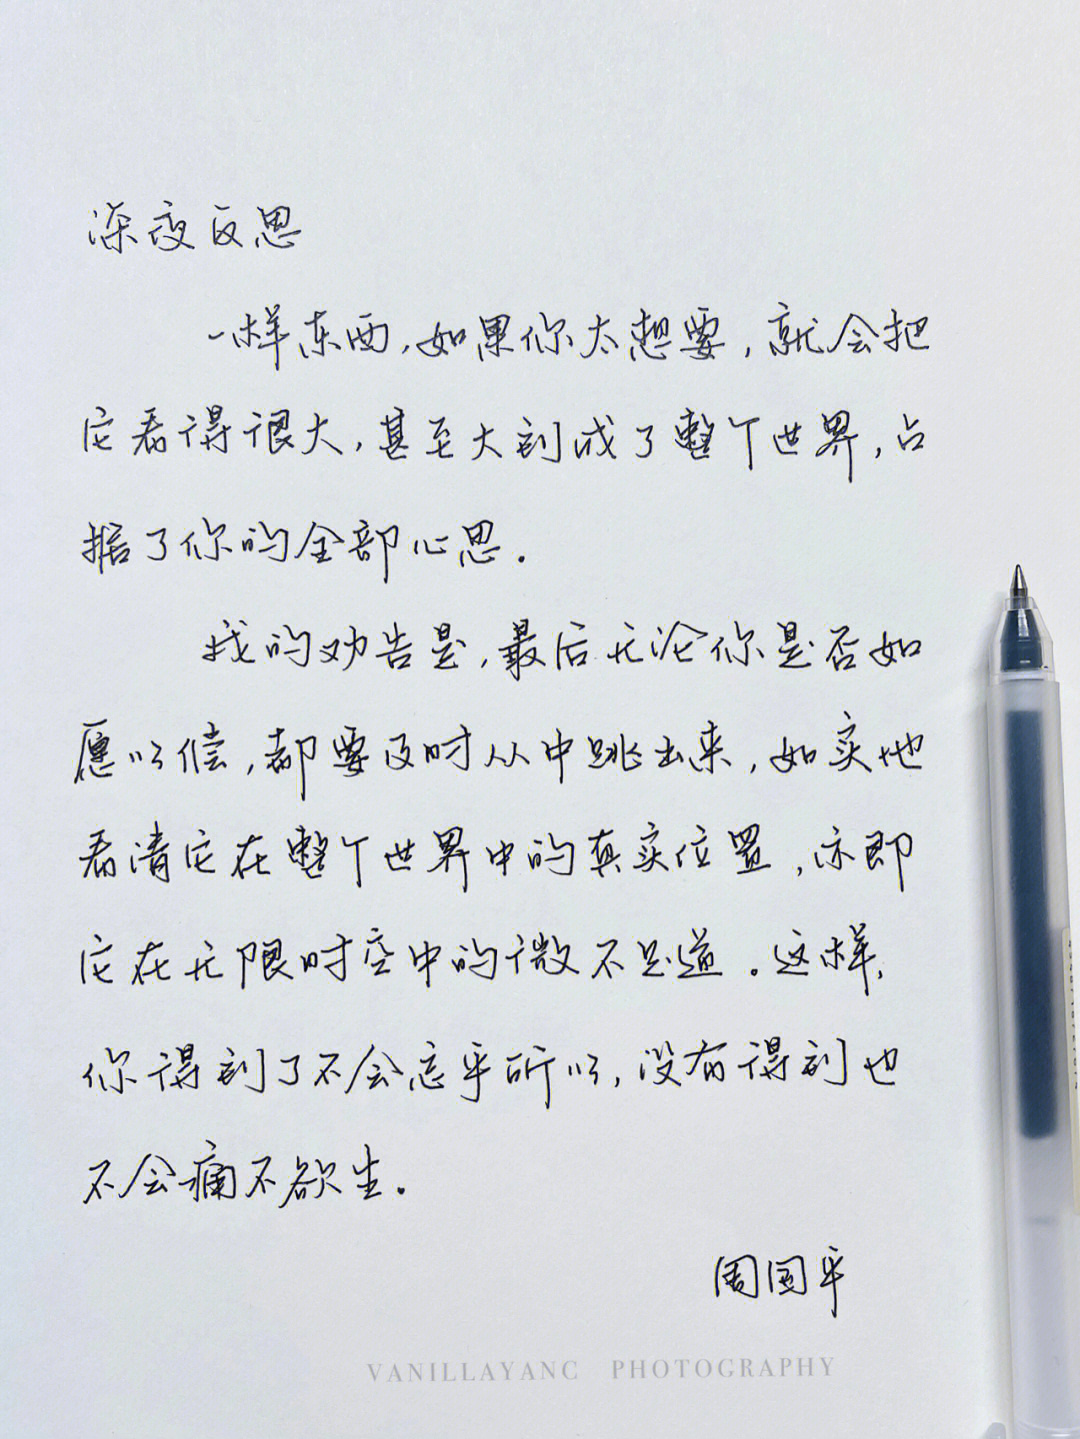 深夜反思
一样东西,如果你太想要,就会把
它看得很大,甚至大到成了整个世界,占
据了你的全部心思.
我的劝告是,最后无论你是否如
愿以偿,都要及时从中跳出来,如实地
看清它在整个世界中的真实位置,亦即
它在无限时空中的微不足道.这样,
你得到了不会忘乎所以,没有得到也
不会痛不欲生.
周国平
VANILLAYANC PHOTOGRAPHY